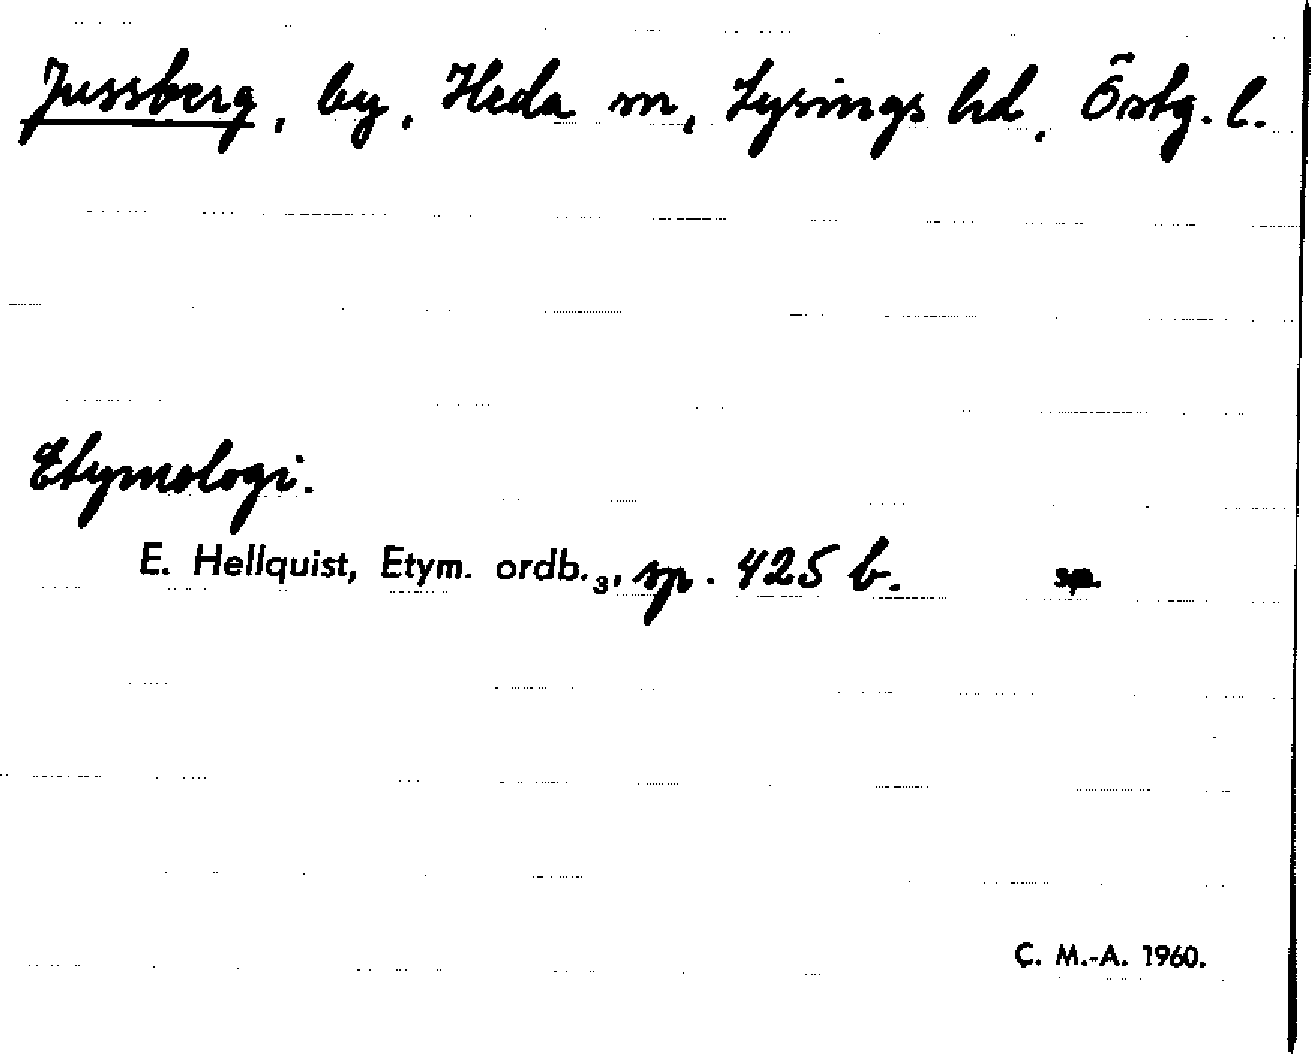 Jussberg, by, Heda sn, Lysings hd, Östg. l.
Etymologi.
E. Hellquist, Etym. ordb.₃, sp. 425 b.
C. M.-A. 1960.